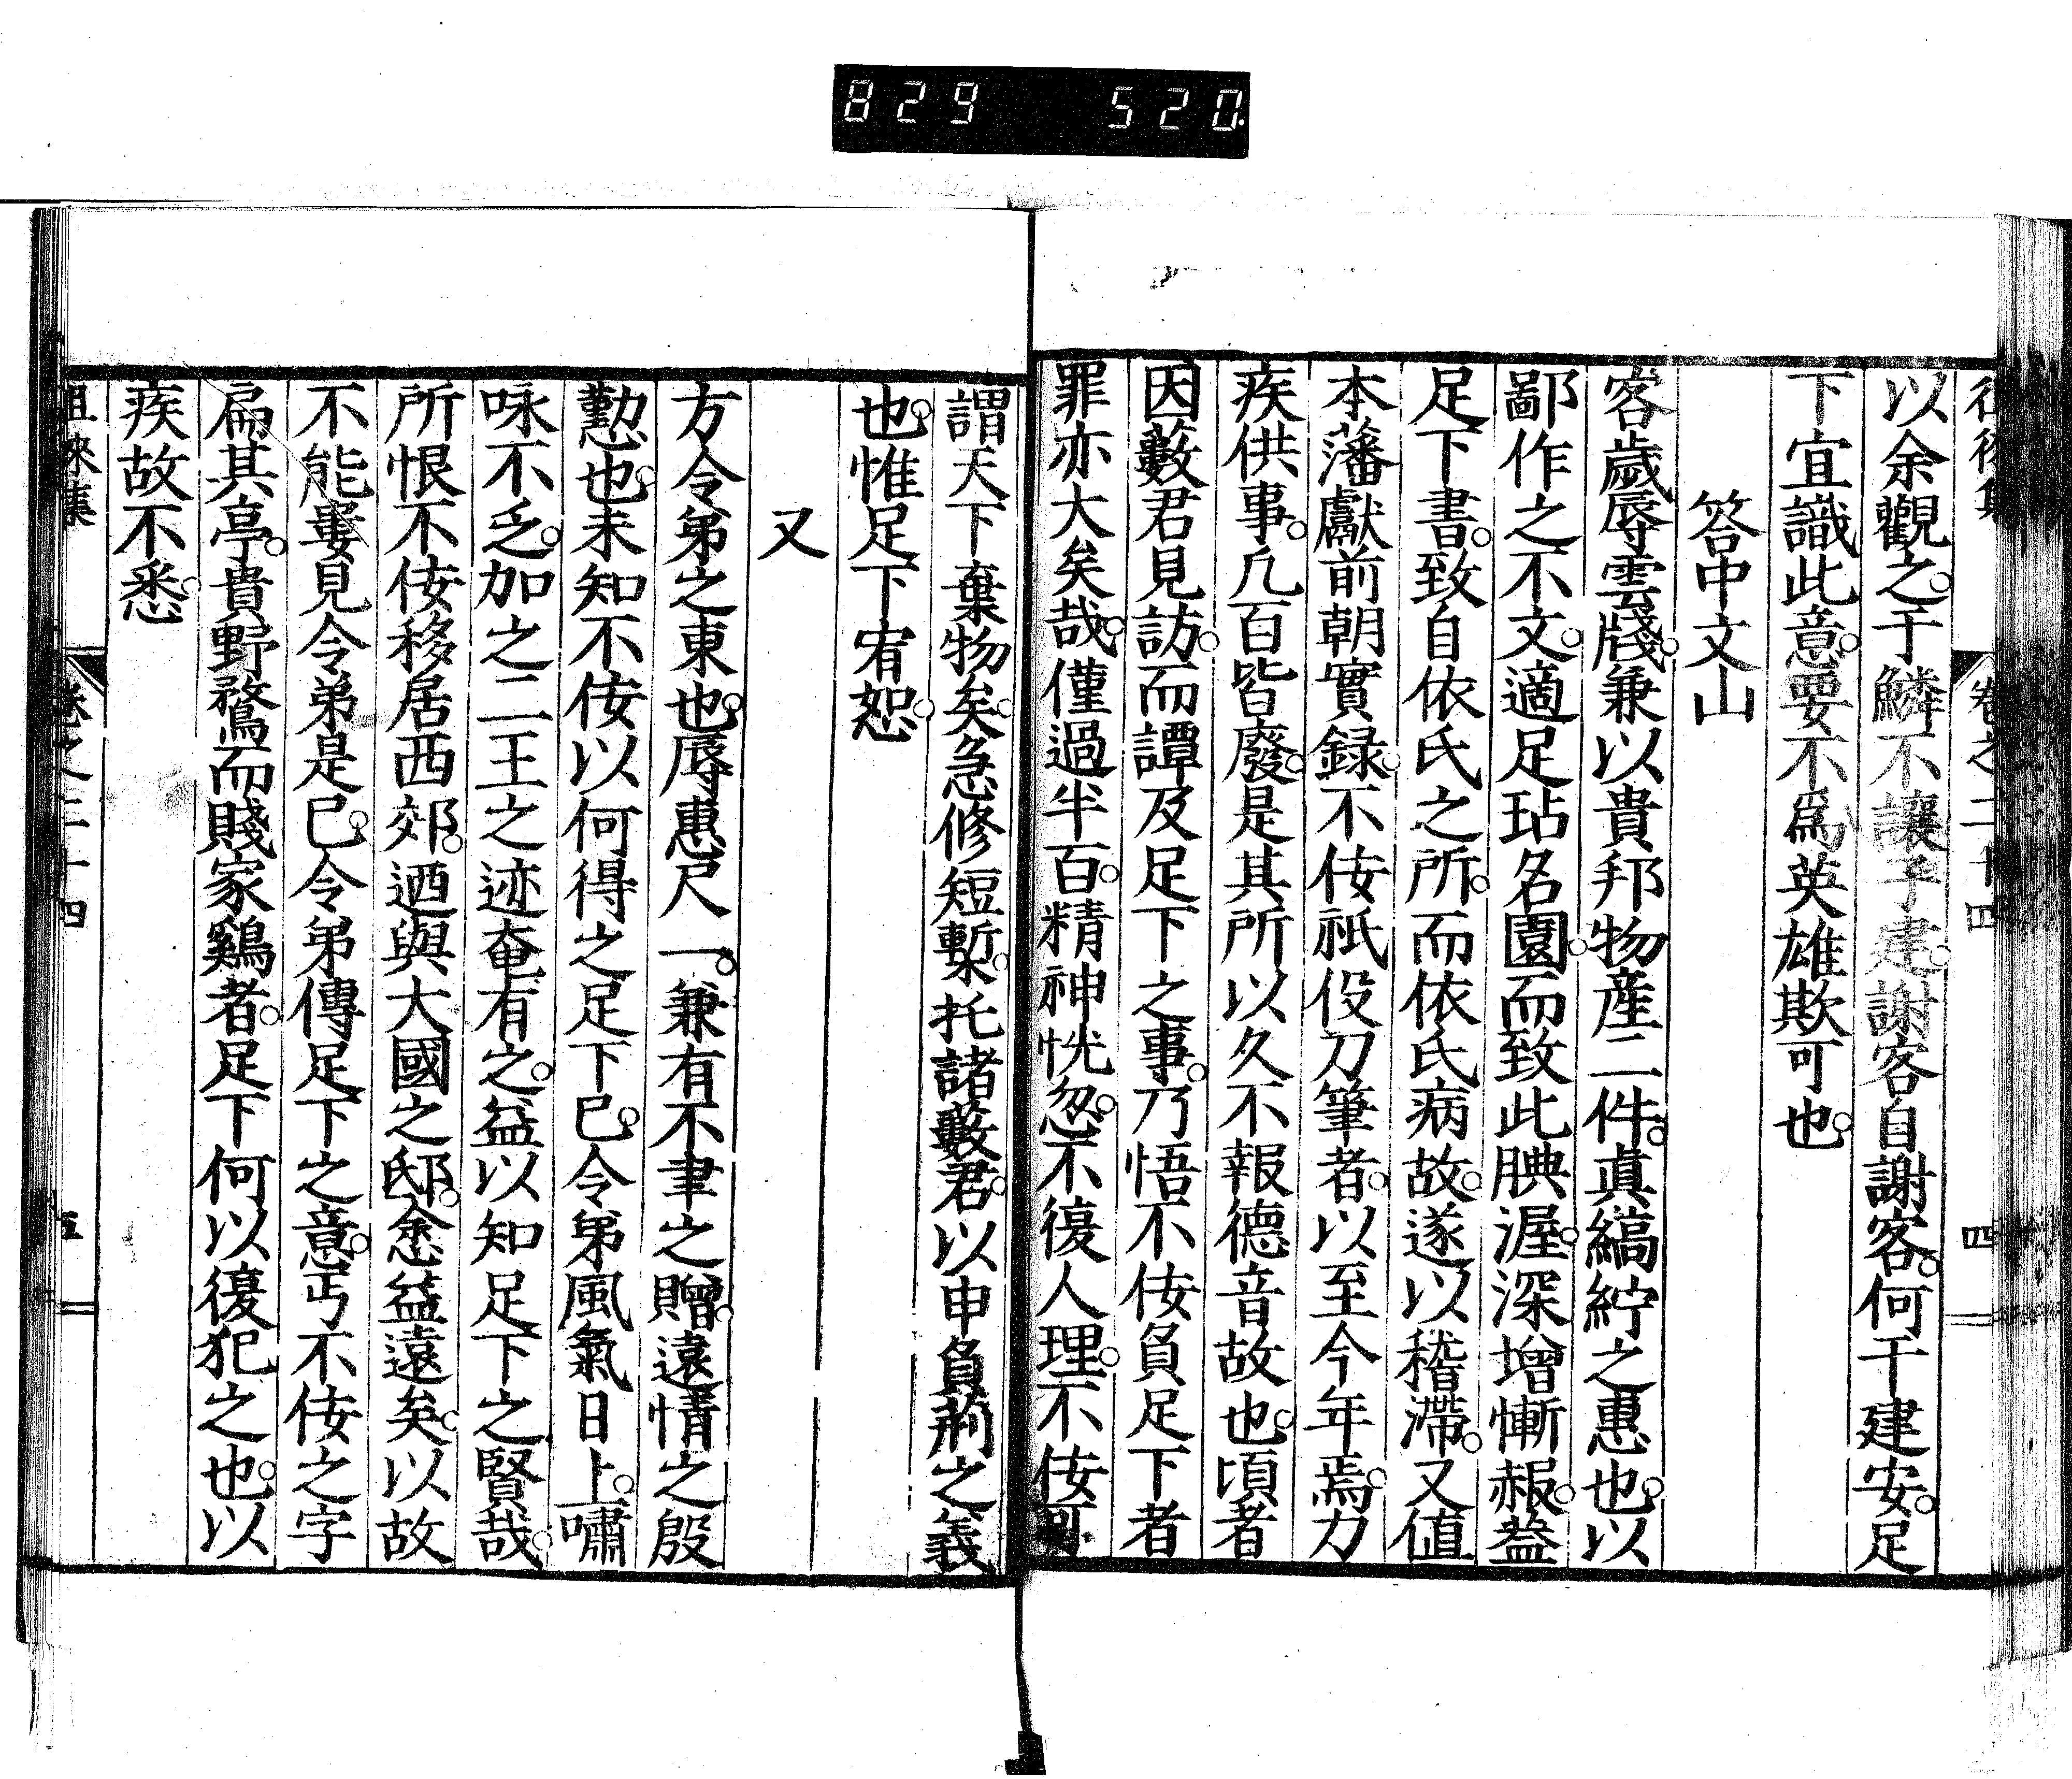 829 520
徂徠集 卷之二十四 四
以余觀之。于鱗不讓子建。謝客自謝客。何干建安。足
下宜識此意。要不爲英雄欺可也。
答中文山
客歲辱雲牋。兼以貴邦物産二件。眞縞紵之惠也。以
鄙作之不文。適足玷名園。而致此腆渥。深增慚赧。益
足下書。致自依氏之所。而依氏病故。遂以稽滯。又値
本藩獻前朝實録。不佞祇役刀筆者。以至今年焉。力
疾供事。凡百皆廢。是其所以久不報德音故也。頃者
因藪君見訪。而譚及足下之事。乃悟不佞負足下者
罪亦大矣哉。僅過半百。精神恍忽。不復人理。不佞可
謂天下棄物矣。急修短槧。托諸藪君。以申負荊之義
也。惟足下宥恕。
又
方令弟之東也。辱惠尺一。兼有不聿之贈。遠情之殷
懃也。未知不佞以何得之足下已。令弟風氣日上。嘯
咏不乏。加之二王之迹奄有之。益以知足下之賢哉。
所恨不佞移居西郊。迺與大國之邸。悆益遠矣。以故
不能婁見令弟是已。令弟傳足下之意。丐不佞之字
扁其亭。貴野鶩而賤家鷄者。足下何以復犯之也。以
疾故不悉。
徂徠集 卷之二十四 五